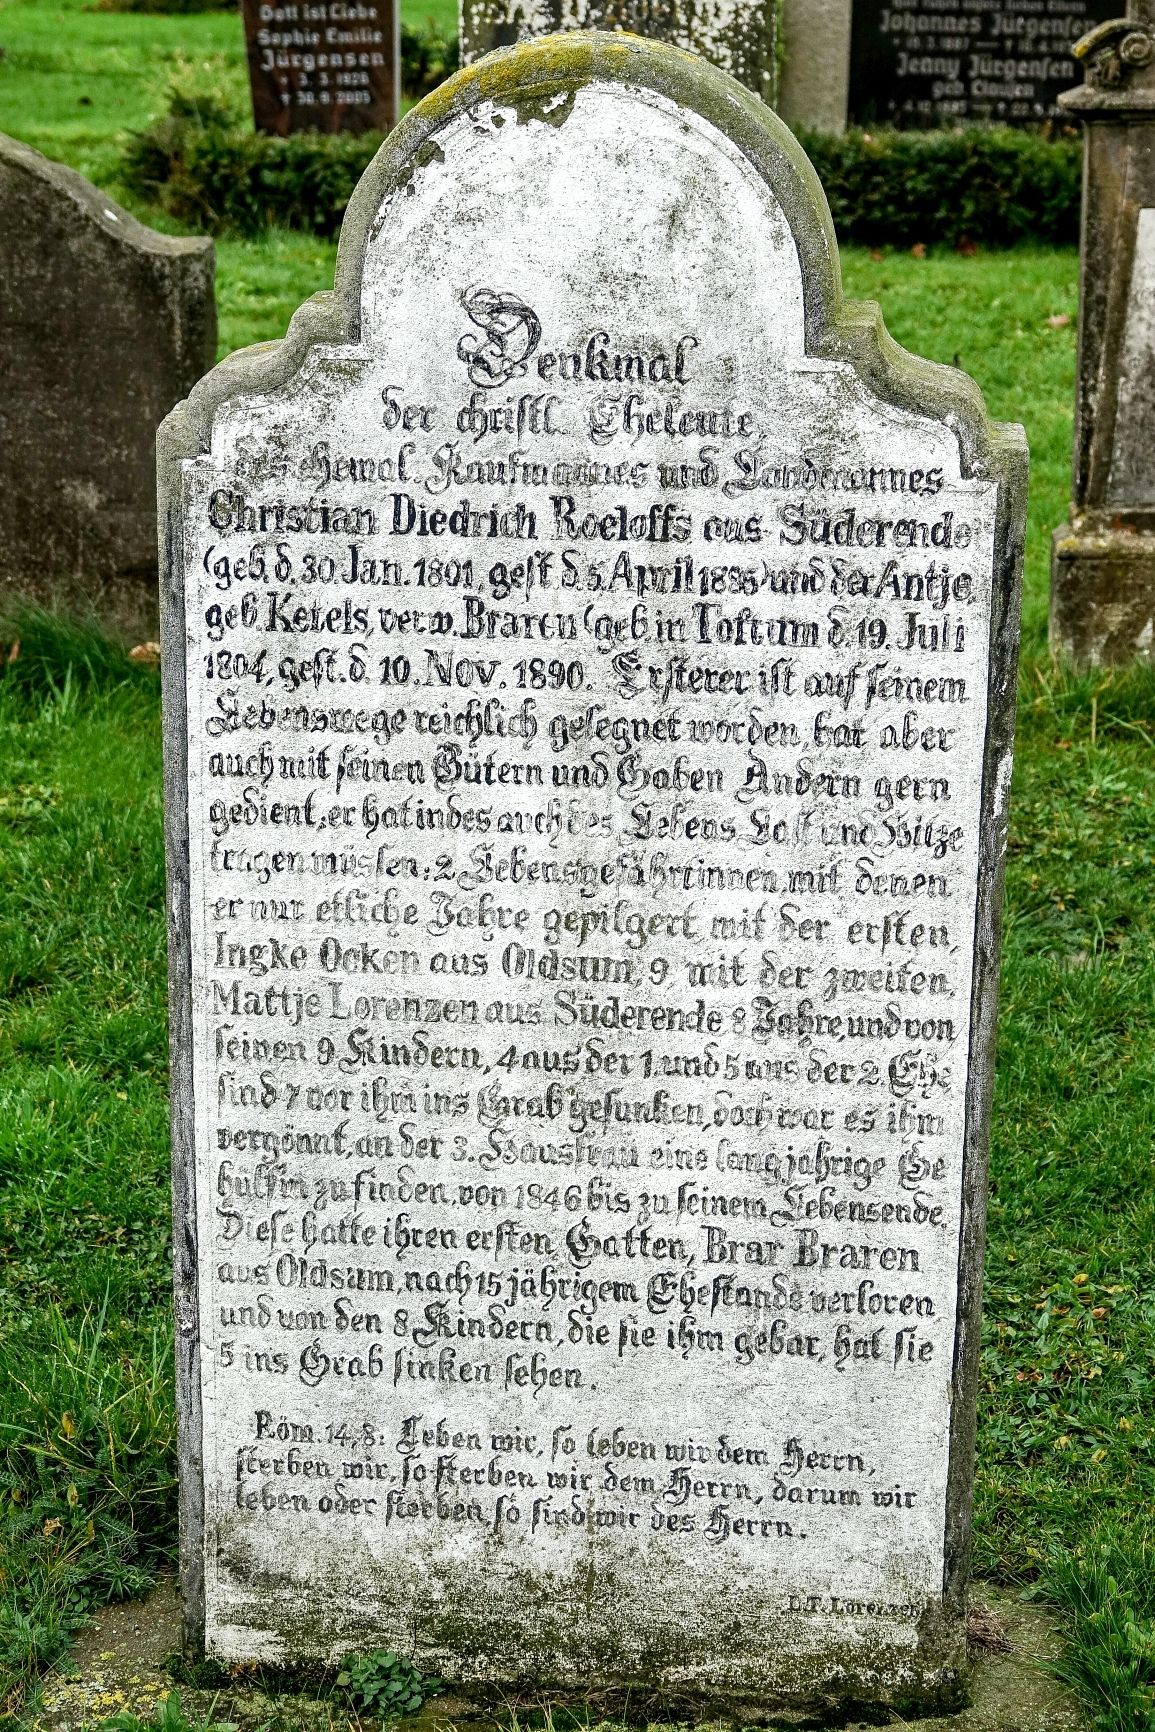 Gott ist Liebe
Sophie Emilie
Jürgensen
Johannes Jürgensen
Jenny Jürgensen
geb. Clausen
Denkmal
der christl. Eheleute,
des ehemal. Kaufmannes und Landmannes
Christian Diedrich Roeloffs aus Süderende
(geb. d. 30. Jan. 1801, gest d. 5. April 1885) und der Antje,
geb. Ketels, verw. Braren (geb in Toftum d. 19. Juli
1804, gest. d. 10. Nov. 1890. Ersterer ist auf seinem
Lebenswege reichlich gesegnet worden, hat aber
auch mit seinen Gütern und Gaben Andern gern
gedient, er hat indes auch des Lebens Last und Hitze
tragen müssen: 2 Lebensgefährtinnen, mit denen
er nur etliche Jahre gepilgert mit der ersten,
Ingke Ocken aus Oldsum, 9, mit der zweiten,
Mattje Lorenzen aus Süderende 8 Jahre, und von
seinen 9 Kindern, 4 aus der 1. und 5 aus der 2. Ehe
sind 7 vor ihm ins Grab gesunken, doch war es ihm
vergönnt, an der 3. Hausfrau eine langjährige Ge
hülfin zu finden, von 1846 bis zu seinem Lebensende.
Diese hatte ihren ersten Gatten, Brar Braren
aus Oldsum, nach 15 jährigem Ehestande verloren
und von den 8 Kindern, die sie ihm gebar, hat sie
5 ins Grab sinken sehen.
Röm. 14, 8: Leben wir, so leben wir dem Herrn,
sterben wir, so sterben wir dem Herrn, darum wir
leben oder sterben, so sind wir des Herrn.
Lorenzen